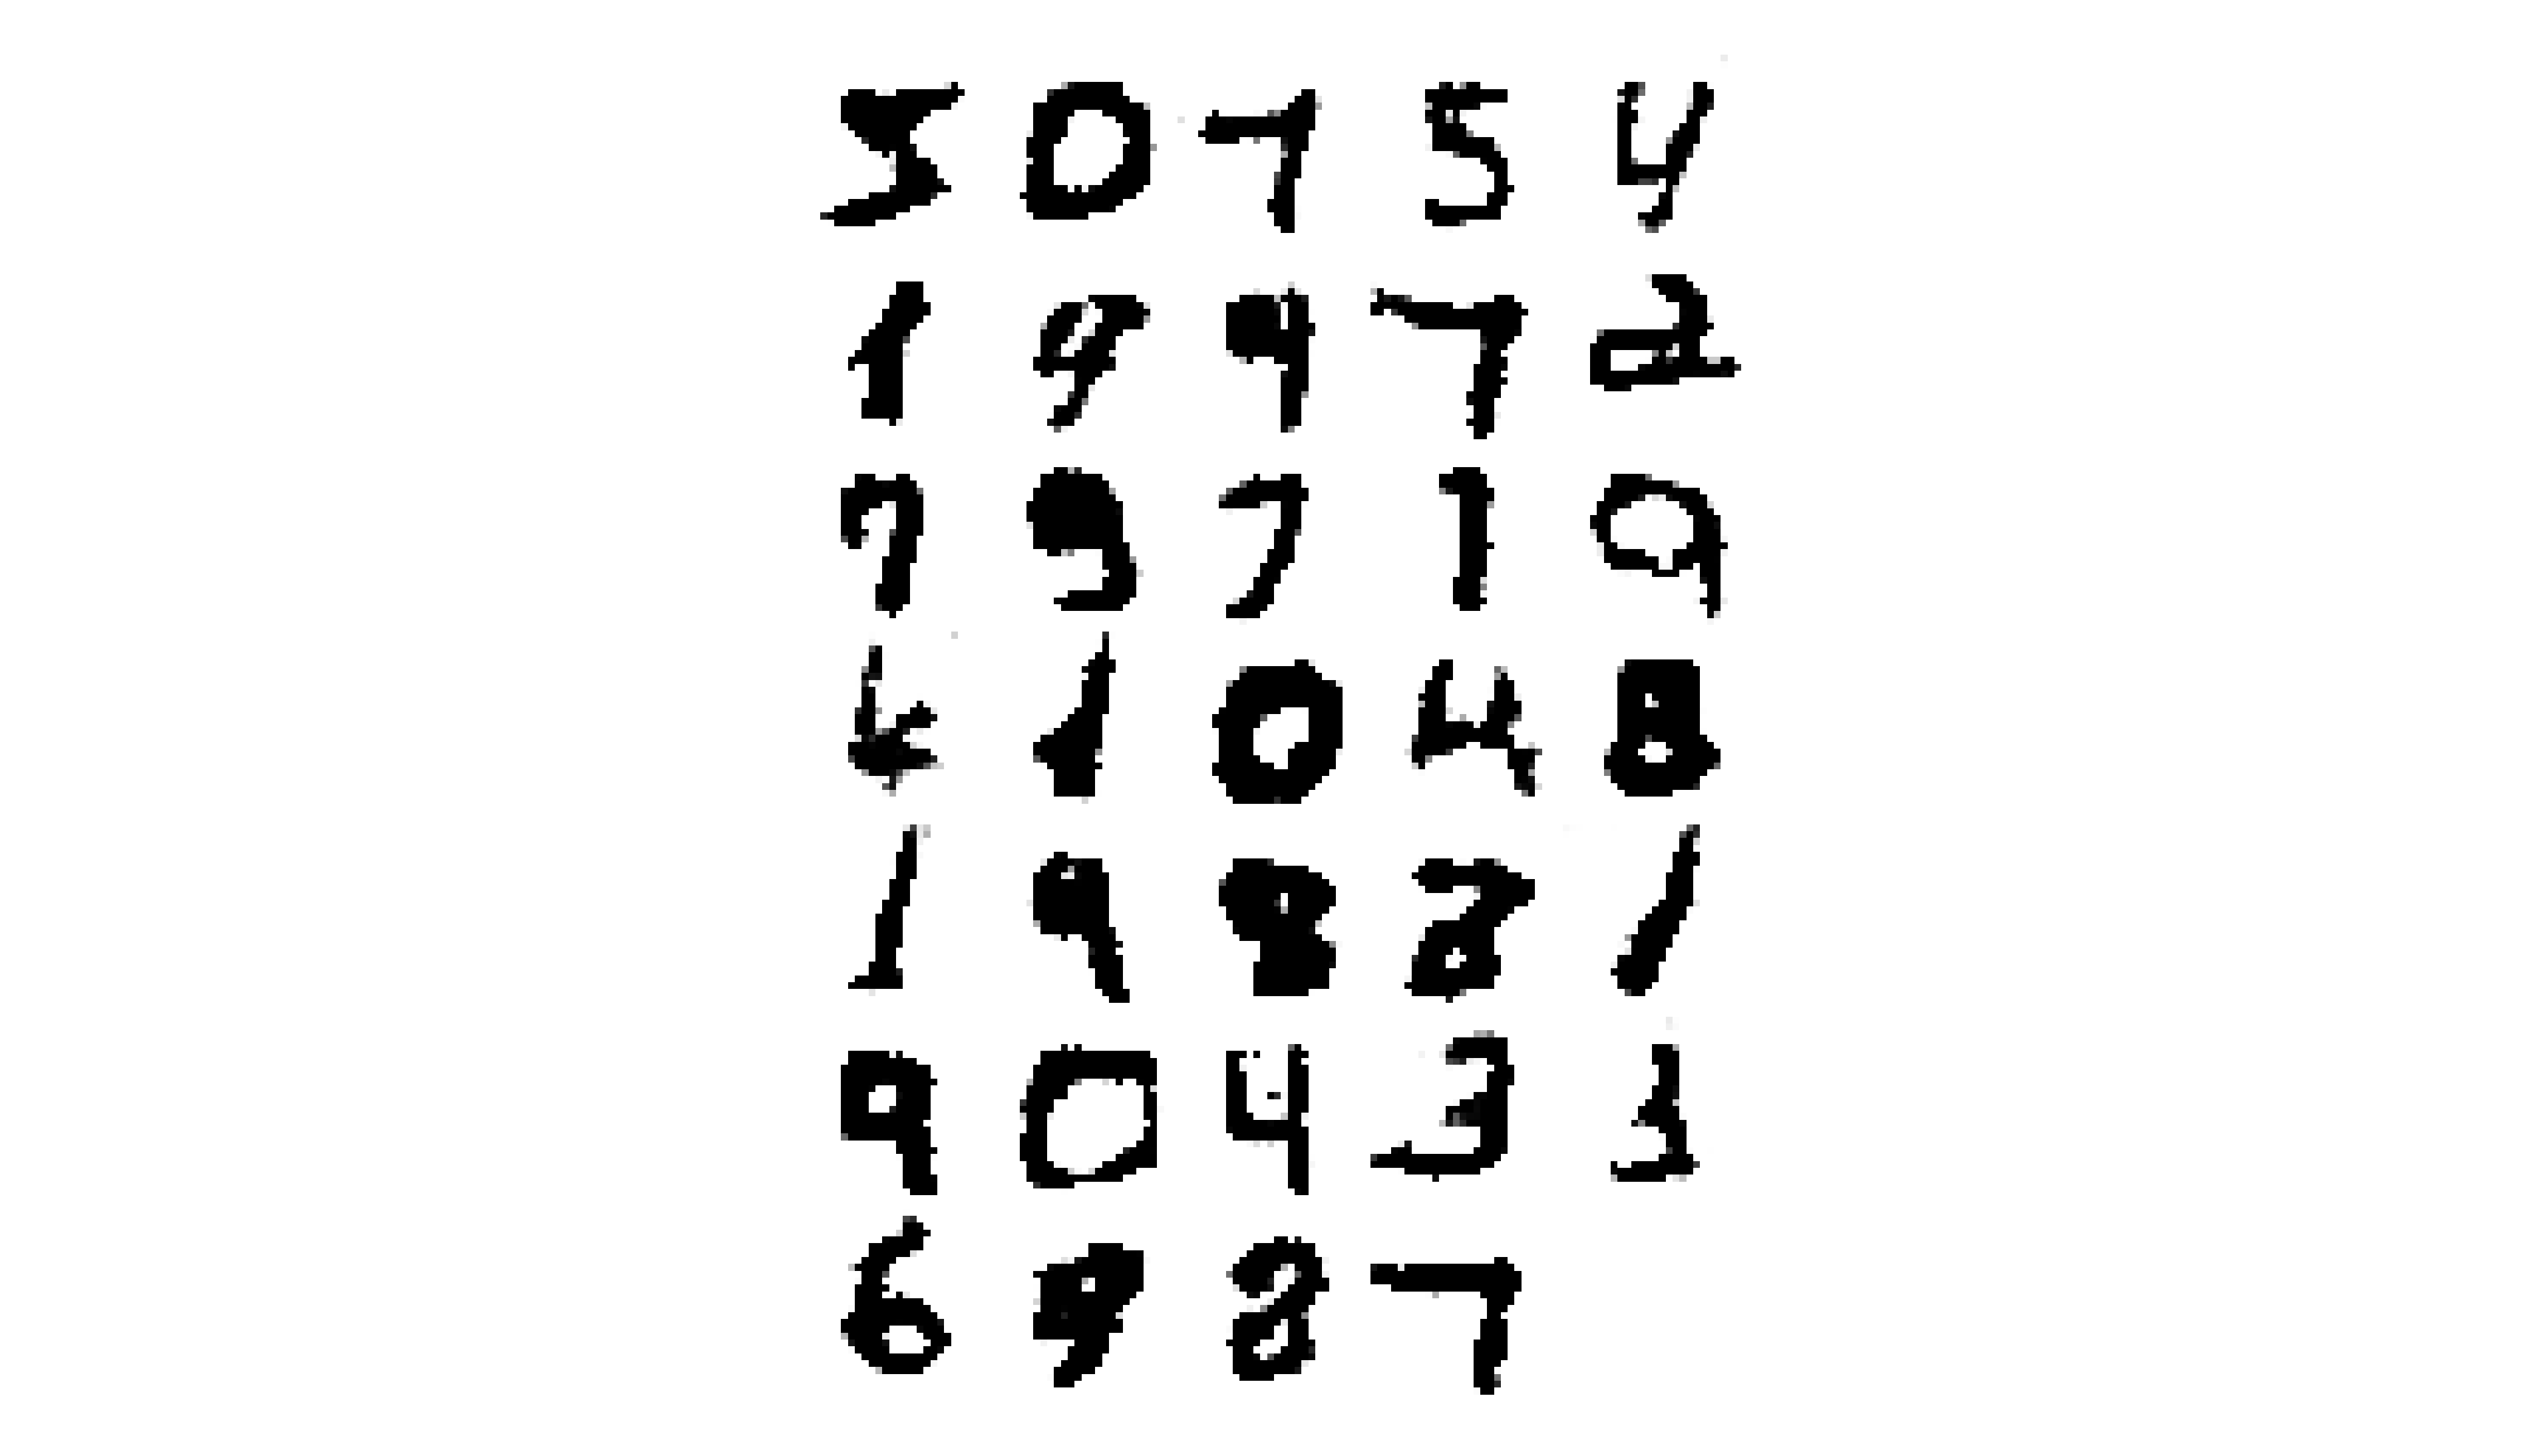 5 0 7 5 4
1 9 9 7 2
7 9 7 1 9
4 1 0 4 8
1 9 8 8 1
9 0 4 3 3
6 9 8 7